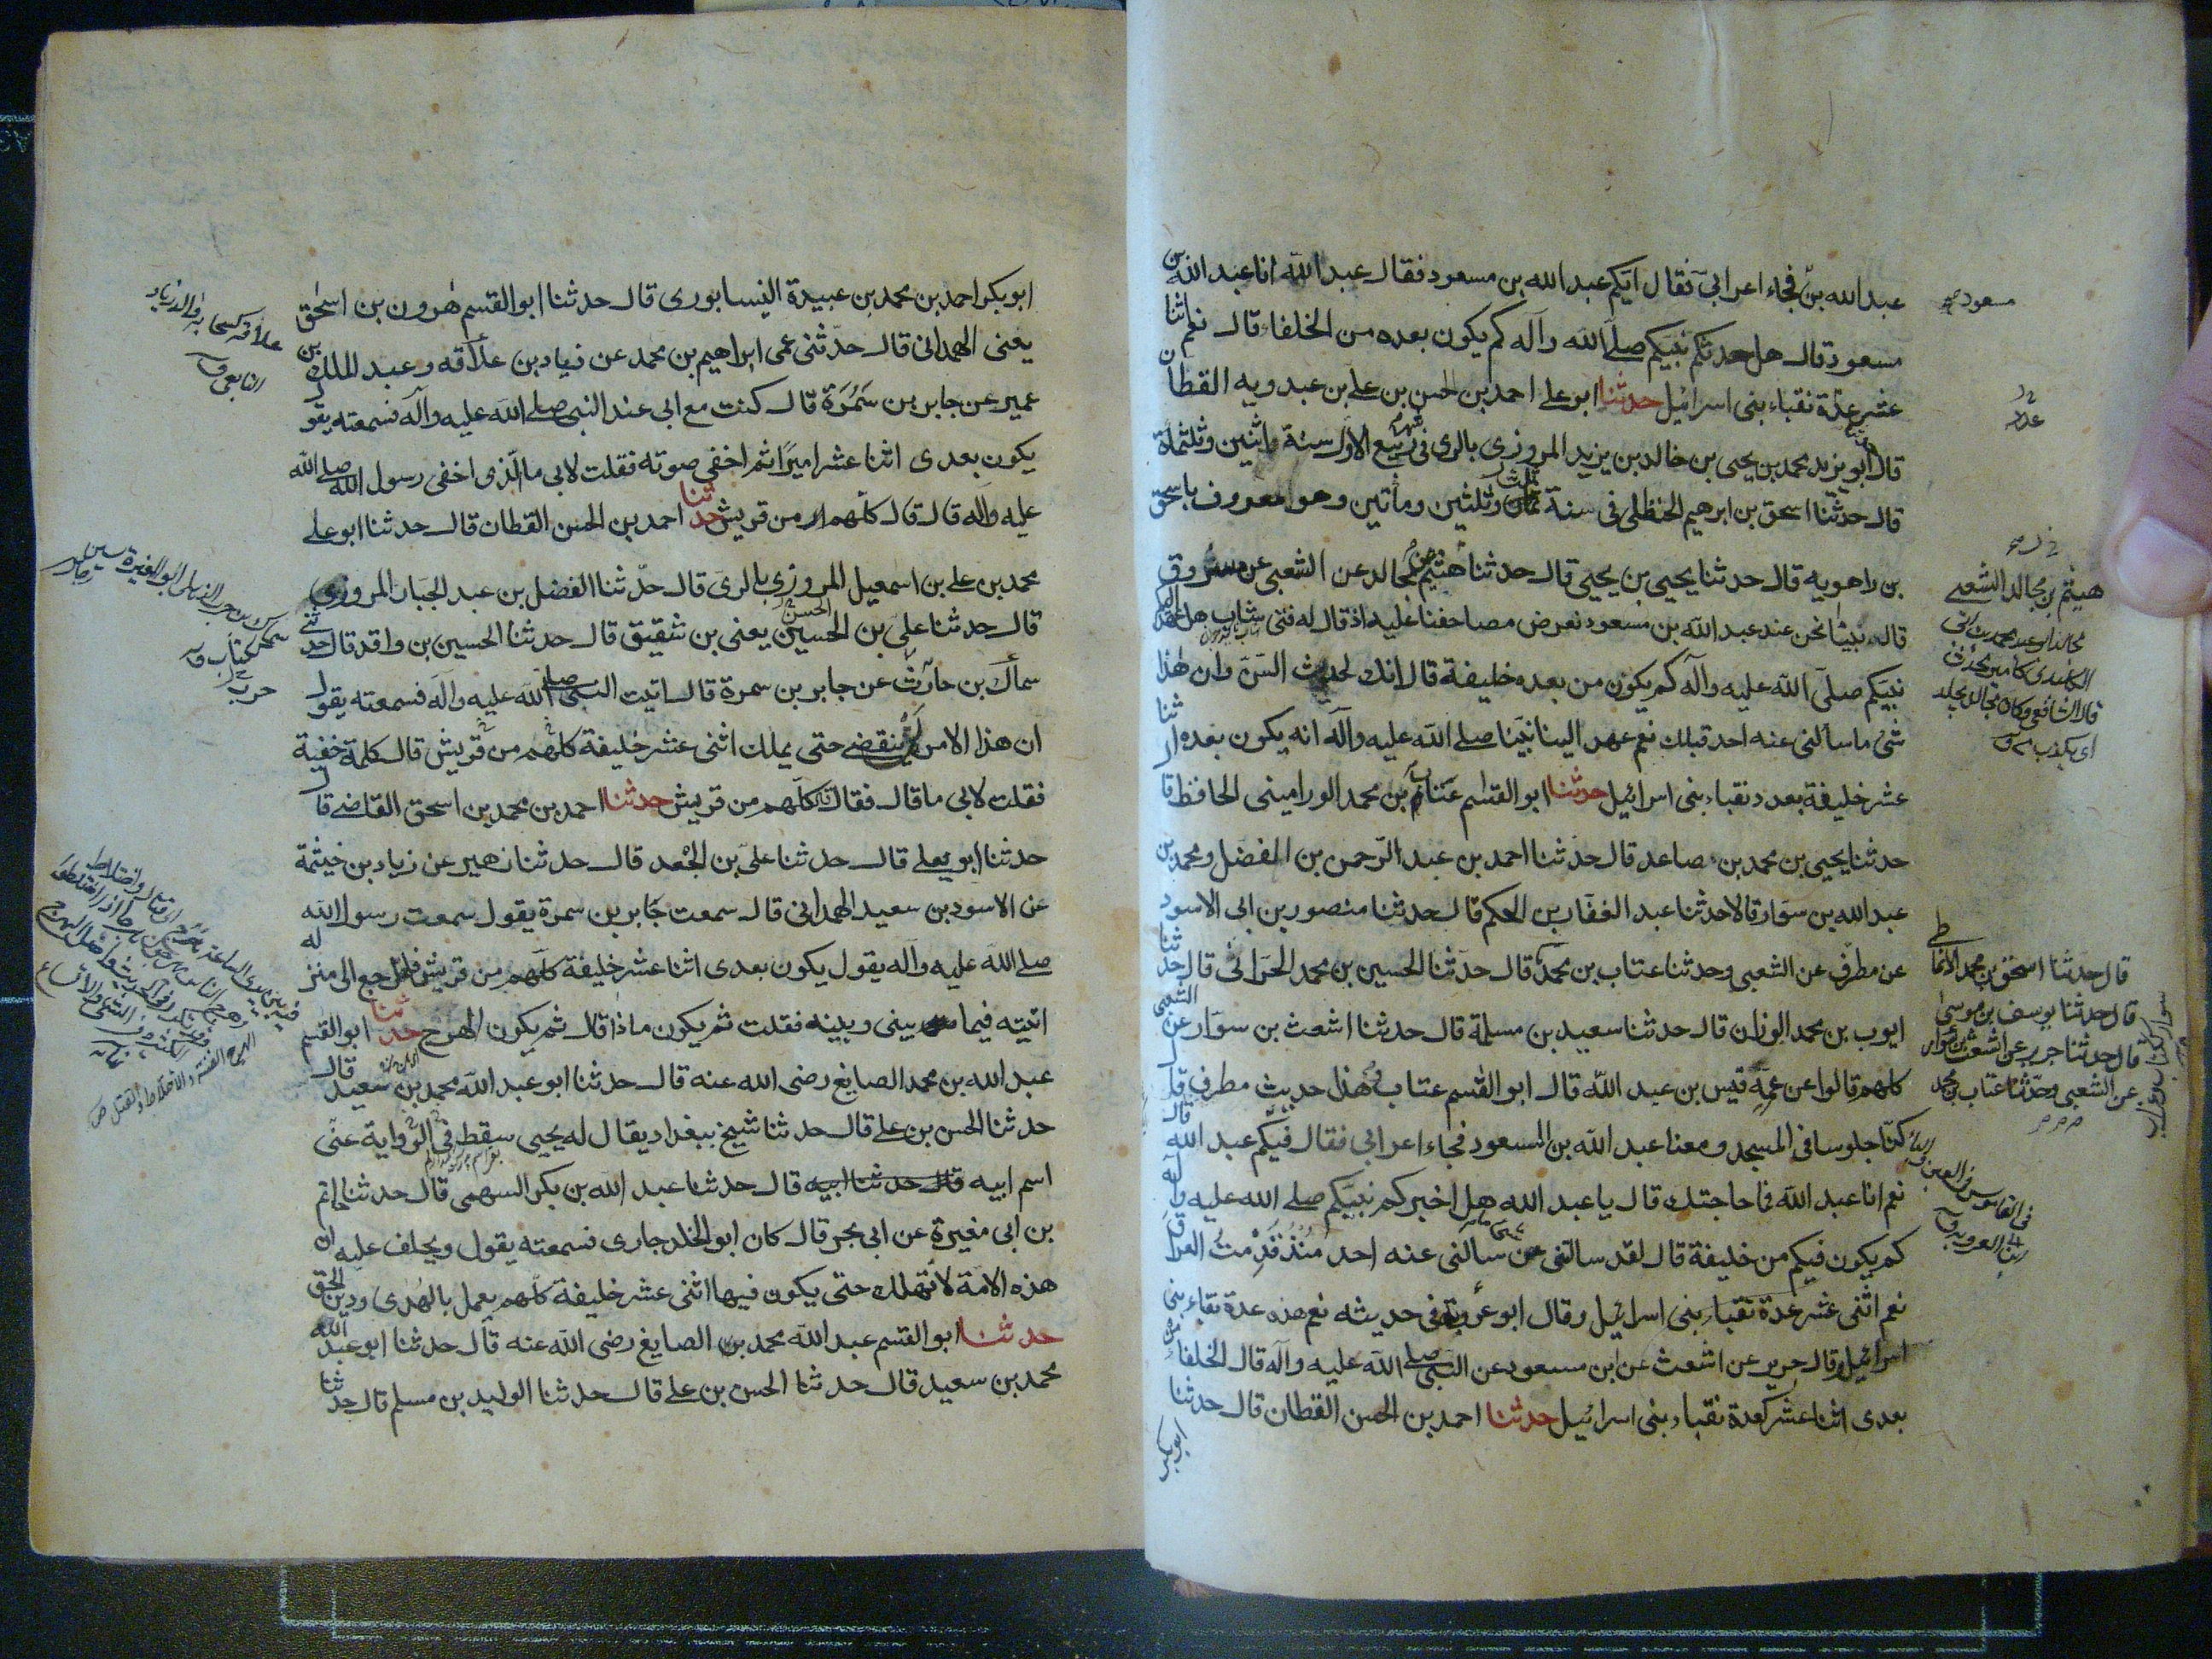 عبد الله بن فجاء اعرابى فقال ايكم عبد الله بن مسعود فقال عبد الله انا عبد الله بن
مسعود قال هل حدثكم نبيكم صلى الله وآله كم يكون بعده من الخلفاء قال نعم اثنا
عشر عدة نقباء بنى اسرائيل حدثنا ابو على احمد بن الحسن بن على بن عبدويه القطان
قال ابو يزيد محمد بن يحيى بن خالد بن يزيد المروزى بالرى فى ربيع الاول سنة اثنين وثلثمائة
قال حدثنا اسحق بن ابرهيم الحنظلى فى سنة ثمان وثلثين ومأتين وهو المعروف باسحق
بن راهويه قال حدثنا يحيى بن يحيى قال حدثنا هشيم عن مجالد عن الشعبى عن مسروق
قال بينا نحن عند عبد الله بن مسعود نعرض مصاحفنا عليه اذ قال له فتى شاب هل عهد اليكم
نبيكم صلى الله عليه وآله كم يكون من بعده خليفة قال انك لحديث السن وان هذا
شئ ما سألنى عنه احد قبلك نعم عهد الينا نبينا صلى الله عليه وآله انه يكون بعده اثنا
عشر خليفة بعدد نقباء بنى اسرائيل حدثنا ابو القسم عتاب بن محمد الورامينى الحافظ قال
حدثنا يحيى بن محمد بن صاعد قال حدثنا احمد بن عبد الرحمن بن المفضل ومحمد بن
عبد الله بن سوار قالا حدثنا عبد الغفار بن الحكم قال حدثنا منصور بن ابى الاسود
عن مطرف عن الشعبى وحدثنا عتاب بن محمد قال حدثنا الحسين بن محمد الحرانى قال حدثنا
ايوب بن محمد الوزان قال حدثنا سعيد بن مسلمة قال حدثنا اشعث بن سوار عن الشعبى
كلهم قالوا عن عمه قيس بن عبد الله قال ابو القسم عتاب وهذا حديث مطرف قال
كنا جلوسا فى المسجد ومعنا عبد الله بن المسعود فجاء اعرابى فقال فيكم عبد الله قال
نعم انا عبد الله فما حاجتك قال يا عبد الله هل اخبركم نبيكم صلى الله عليه وآله
كم يكون فيكم من خليفة قال لقد سالتنى عن سألنى عنه احد منذ قدمت العراق
نعم اثنى عشر عدة نقباء بنى اسرائيل وقال ابو عروبة فى حديثه نعم هذه عدة نقباء بنى
اسرائيل وقال جرير عن اشعث عن ابن مسعود عن النبى صلى الله عليه وآله قال الخلفاء من
بعدى اثنا عشر كعدة نقباء بنى اسرائيل حدثنا احمد بن الحسن القطان قال حدثنا
ابو بكر
مسعود
عدة
هيثم بن مجالد الشعبى
قال حدثنا اسحق بن محمد الانماطى
قال حدثنا يوسف بن موسى
قال حدثنا جرير عن اشعث بن سوار
عن الشعبى وحدثنا عتاب بن محمد
ابو بكر احمد بن محمد بن عبيدة النيسابورى قال حدثنا ابو القسم هرون بن اسحق
يعنى الهمدانى قال حدثنى عمى ابراهيم بن محمد عن زياد بن علاقه وعبد الملك بن
عمير عن جابر بن سمرة قال كنت مع ابى عند النبى صلى الله عليه وآله فسمعته يقول
يكون بعدى اثنا عشر اميرا ثم اخفى صوته فقلت لابى ما الذى اخفى رسول الله صلى الله
عليه وآله قال قال كلهم من قريش حدثنا احمد بن الحسن القطان قال حدثنا ابو على
محمد بن على بن اسمعيل المروزى بالرى قال حدثنا الفضل بن عبد الجبار المروزى
قال حدثنا على بن الحسين الحسن يعنى بن شقيق قال حدثنا الحسين بن واقد قال حدثنى
سماك بن حارث عن جابر بن سمرة قال اتيت النبى صلى الله عليه وآله فسمعته يقول
ان هذا الامر لن ينقضى حتى يملك اثنى عشر خليفة كلهم من قريش قال كلمة خفية
فقلت لابى ما قال فقال قال كلهم من قريش حدثنا احمد بن محمد بن اسحق القاضى قال
حدثنا ابو يعلى قال حدثنا على بن الجعد قال حدثنا زهير عن زياد بن خيثمة
عن الاسود بن سعيد الهمدانى قال سمعت جابر بن سمرة يقول سمعت رسول الله
صلى الله عليه وآله يقول يكون بعدى اثنا عشر خليفة كلهم من قريش فلما رجع الى منزله
اتيته فيما بينى وبينه فقلت ثم يكون ماذا قال ثم يكون الهرج حدثنا ابو القسم
عبد الله بن محمد الصايغ رضى الله عنه قال حدثنا ابو عبد الله محمد بن سعيد قال
حدثنا الحسن بن على قال حدثنا شيخ ببغداد يقال له يحيى سقط فى الرواية عنى
اسم ابيه قال حدثنا ابيه قال حدثنا عبد الله بن بكر السهمى قال حدثنا حاتم
بن ابى مغيرة عن ابى بحر قال كان ابو الخلد جارى فسمعته يقول ويحلف عليه ان
هذه الامة لا تهلك حتى يكون فيها اثنى عشر خليفة كلهم يعمل بالهدى ودين الحق
حدثنا ابو القسم عبد الله محمد بن الصايغ رضى الله عنه قال حدثنا ابو عبد الله
محمد بن سعيد قال حدثنا الحسن بن على قال حدثنا الوليد بن مسلم قال حدثنا